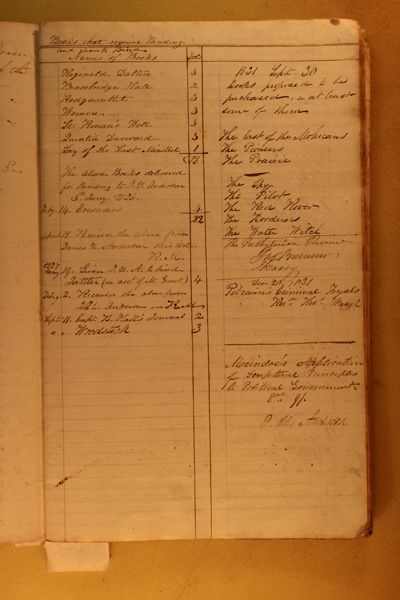 Books that require Binding
and [already] Bound
Names of Books Vols
Reginald Dalton 3
Bracebridge Hall 2
Redgauntlet 3
Women 3
St. Ronan's Well 3
Quentin Durward 3
Lay of the Last Minstrel 1
18
The above Books delivered
for binding to J. H. Anderson
5 Jany. 1826.
14. Crusaders 4
22
18. Received the above from
James H. Anderson this date
R. M.
1827
14. Given J. H. A. to bind
Tattler (in acct of Mr. Grant) 4
Feby. 2. Received the above from
J. H. Anderson
Sept. 11. Capt. B. Hall's Journal 2
" " Woodstock 3
1831 Sept. 30
books proposed to be
purchased, or at least
some of them
The last of the Mohicans
The Pioneers
The Prairie
The Spy
The Pilot
The Red Rover
The Borderers
The Water Witch
The Presbyterian Review
Nov 1831
Pitcairn's Criminal Trials
Revd. Thos.
Application
of scriptural Principles
to Political Government